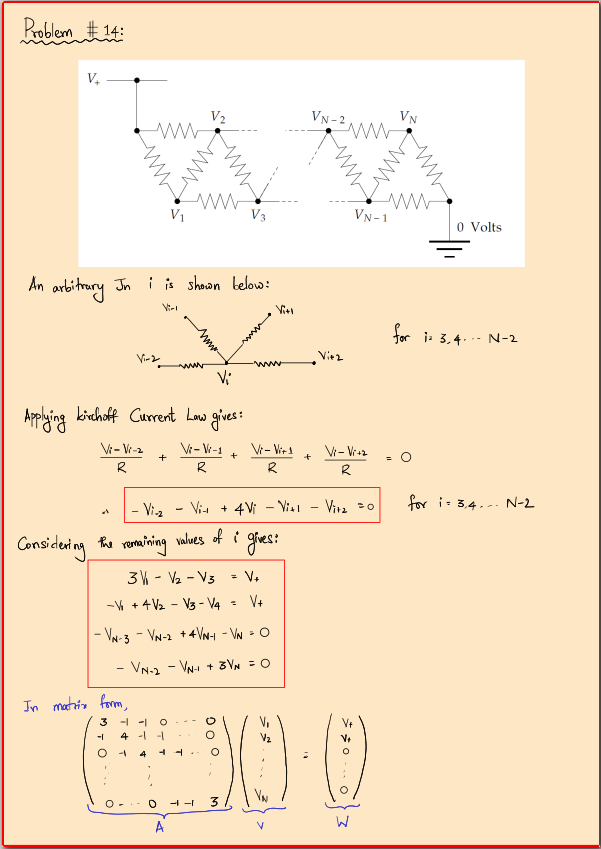 Problem # 14:
V₊
V₂ V_{N-2} V_N
V₁ V₃ V_{N-1}
0 Volts
An arbitrary Jn i is shown below:
V_{i-1} V_{i+1}
for i= 3,4.... N-2
V_{i-2} V_i V_{i+2}
Applying kirchoff Current Law gives:
(V_i - V_{i-2})/R + (V_i - V_{i-1})/R + (V_i - V_{i+1})/R + (V_i - V_{i+2})/R = 0
∴ - V_{i-2} - V_{i-1} + 4V_i - V_{i+1} - V_{i+2} = 0 for i= 3,4.... N-2
Considering the remaining values of i gives:
3V₁ - V₂ - V₃ = V₊
-V₁ + 4V₂ - V₃ - V₄ = V₊
- V_{N-3} - V_{N-2} + 4V_{N-1} - V_N = 0
- V_{N-2} - V_{N-1} + 3V_N = 0
In matrix form,
3 -1 -1 0 ... 0 V₁ V₊
-1 4 -1 -1 ... 0 V₂ V₊
0 -1 4 -1 -1 .. 0 : = 0
: : : : :
0 ... 0 -1 -1 3 V_N 0
A V W